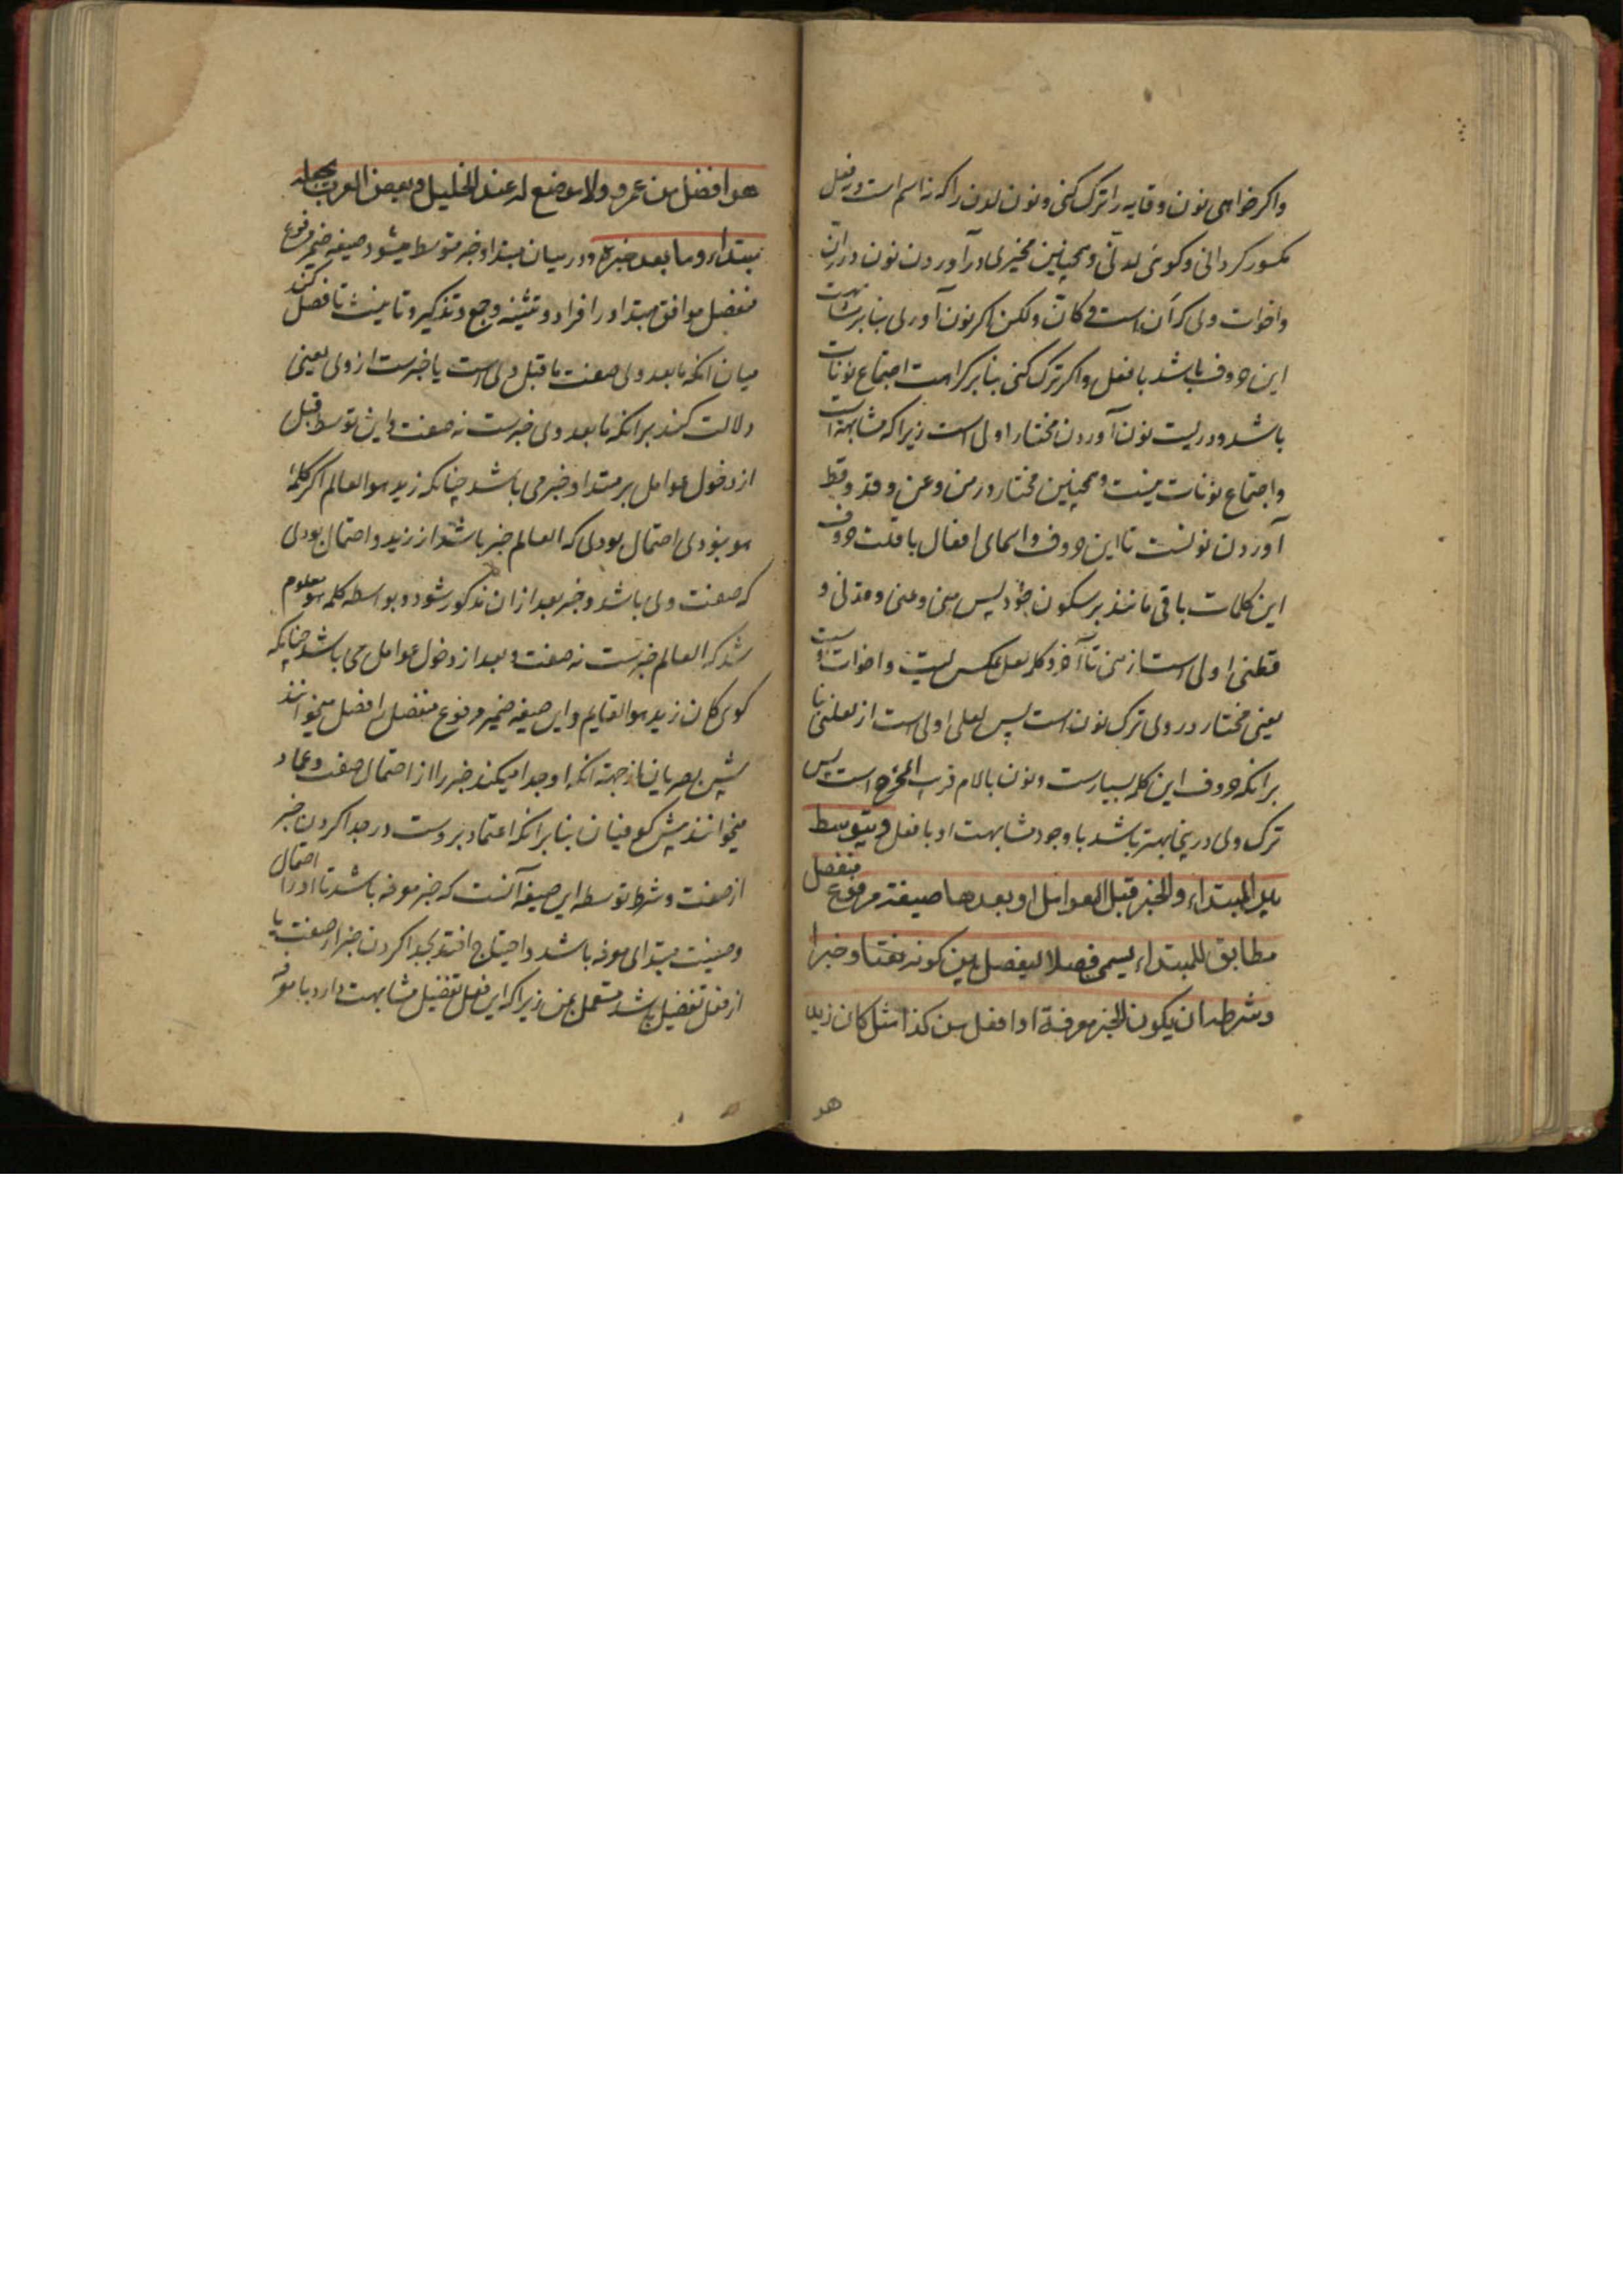 واکر خواهی نون وقایه را ترک کنی و نون لدن را که نه اسم است و نه فعل
مکسور کردانی و کوئی لدنی و همچنین مخیری در آوردن نون در ان
واخوات وی که أن است و کانّ و لکن اکر نون آوری بنابر مشابهت
این حروف باشد بافعل واکر ترک کنی بنابر کراهت اجتماع نونات
باشد و در لیت نون آوردن مختار و اولی است زیرا که مشابهت است
واجتماع نونات نیست و همچنین مختار در من و عن و قد و قط
آوردن نونست تا این حروف و اسمای افعال با قلت حروف
این کلمات باقی مانند بر سکون خود پس منی و عنی و قدنی و
قطنی اولی است از منی تا آخر و کلمه لعل عکس لیت و اخوات اوست
یعنی مختار در وی ترک نون است پس لعلی اولی است از لعلنی بنا
برانکه حروف این کلمه بسیارست و نون بالام قریب المخرج است پس
ترک وی درینجا بهتر باشد با وجود مشابهت او بافعل ویتوسط
بین المبتداء والخبر قبل العوامل او بعدها صیغة مرفوع منفصل
مطابق للمبتداء یسمی فصلا لیفصل بین کونه نعتا وخبرا
وشرطه ان یکون الخبر معرفة او افعل من کذا مثل کان زید
هو
هو افضل من عمرو ولا موضع له عند الخلیل وبعض العرب یجعله
مبتداء وما بعده خبره ودر میان مبتدا و خبر متوسط میشود صیغه ضمیر مرفوع
منفصل موافق مبتدا در افراد و تثنیه و جمع و تذکیر و تانیث تا فصل کند
میان انکه مابعد وی صفت ماقبل وی است یا خبرست از وی یعنی
دلالت کند برانکه مابعد وی خبرست نه صفت و این توسط قبل
از دخول عوامل بر مبتدا و خبر می باشد چنانکه زید هو العالم اکر کلمهٔ
هو نبودی احتمال بودی که العالم خبر باشد از زید و احتمال بودی
که صفت وی باشد و خبر بعد ازان مذکور شود و بواسطه کلمه هو معلوم
شد که العالم خبرست نه صفت و بعد از دخول عوامل می باشد چنانکه
کوئی کان زید هو القایم و این صیغه ضمیر مرفوع منفصل را فصل میخوانند
پیش بصریان از جهة انکه او جدا میکند خبر را از احتمال صفت و عماد
میخوانند پیش کوفیان بنابرانکه اعتماد بروست در جدا کردن خبر
از صفت و شرط توسط این صیغه آنست که خبر معرفه باشد تا او را احتمال
وصفیت مبتدای معرفه باشد و احتیاج افتد بجدا کردن خبر از صفت یا
افعل تفضیل باشد مستعمل بمن زیرا که این افعل تفضیل مشابهت دارد با معرفه